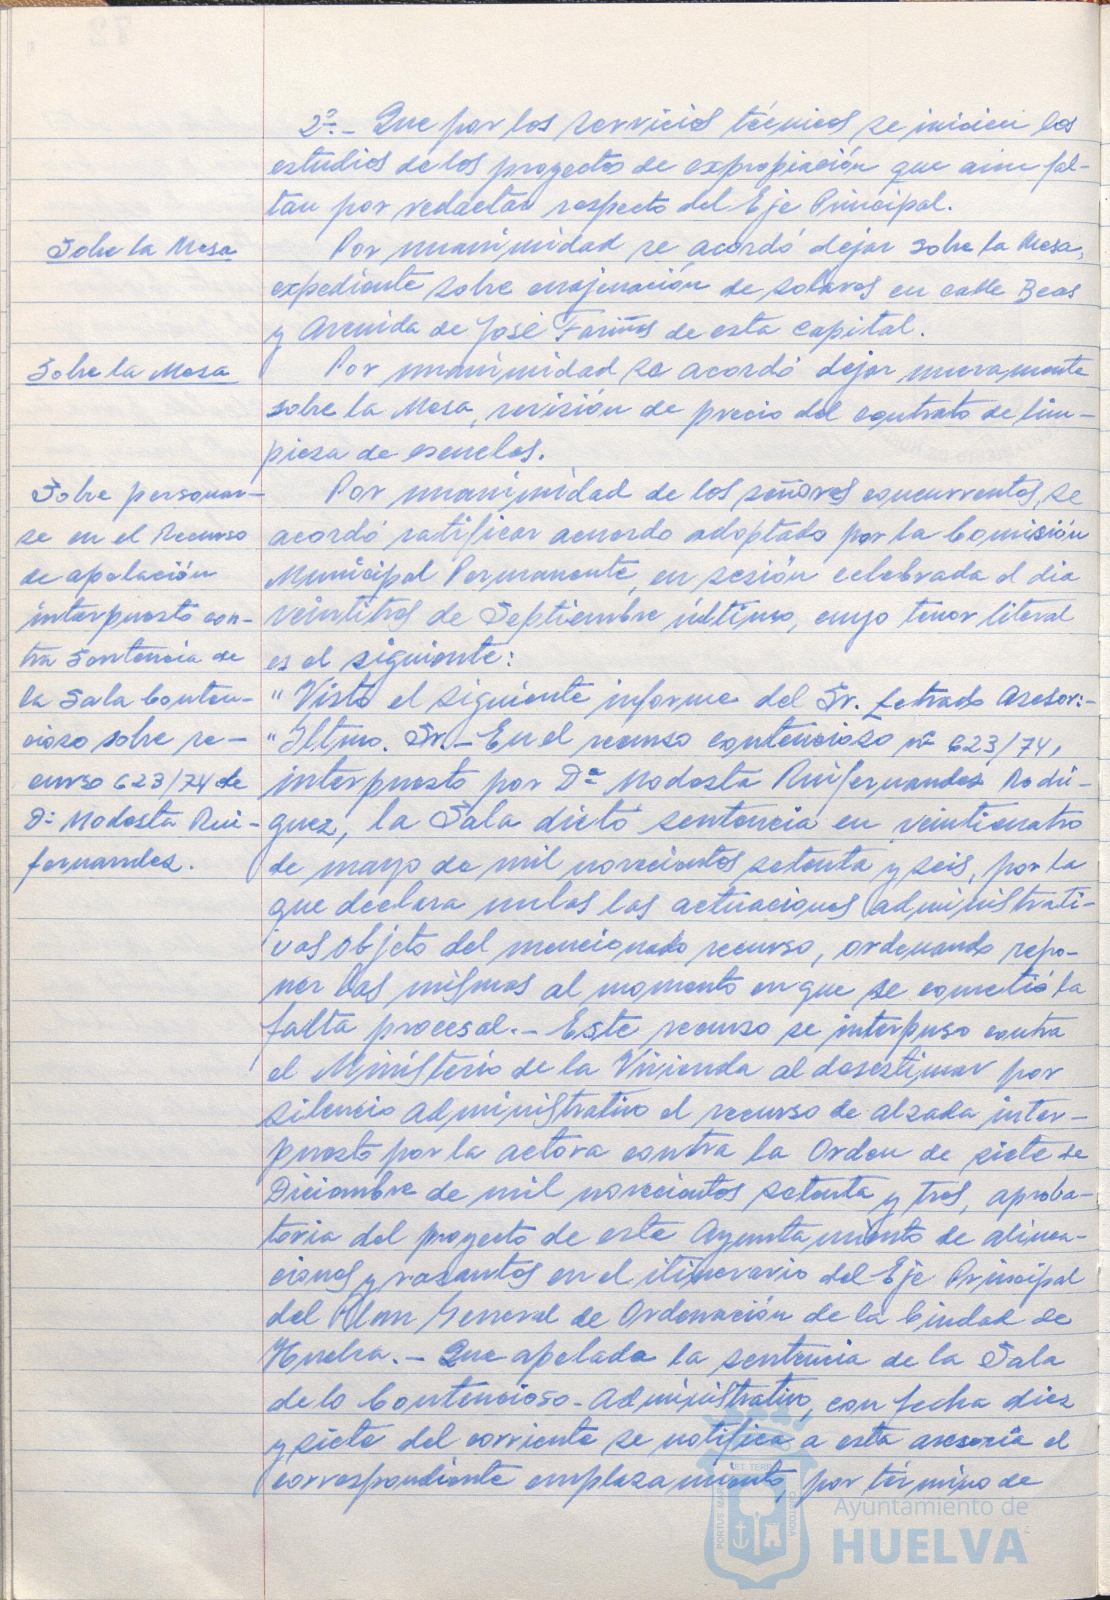 2º.- Que por los servicios técnicos se inicien los
estudios de los proyectos de expropiación que aun fal-
tan por redactar respecto del Eje Principal.
Sobre la Mesa
Por unanimidad se acordó dejar sobre la Mesa,
expediente sobre enajenación de solares en calle Beas
y Avenida de José Fariñas de esta capital.
Sobre la Mesa
Por unanimidad se acordó dejar nuevamente
sobre la Mesa, revisión de precio del contrato de lim-
pieza de escuelas.
Sobre personar-
se en el Recurso
de apelación
interpuesto con-
tra Sentencia de
la Sala Conten-
cioso sobre re-
curso 623/74 de
Dª Modesta Rui-
fernandez.
Por unanimidad de los señores concurrentes, se
acordó ratificar acuerdo adoptado por la Comisión
Municipal Permanente, en sesión celebrada el dia
veintitres de Septiembre último, cuyo tenor literal
es el siguiente:
"Visto el siguiente informe del Sr. Letrado Asesor:-
"Iltmo. Sr.- En el recurso contencioso nº 623/74,
interpuesto por Dª Modesta Ruifernandez Rodrí-
guez, la Sala dictó sentencia en veinticuatro
de mayo de mil novecientos setenta y seis, por la
que declara nulas las actuaciones administrati-
vas objeto del mencionado recurso, ordenando repo-
ner las mismas al momento en que se cometió la
falta procesal.- Este recurso se interpuso contra
el Ministerio de la Vivienda al desestimar por
silencio administrativo el recurso de alzada inter-
puesto por la actora contra la Orden de siete de
Diciembre de mil novecientos setenta y tres, aproba-
toria del proyecto de este Ayuntamiento de alinea-
ciones y rasantes en el itinerario del Eje Principal
del Plan General de Ordenación de la Ciudad de
Huelva.- Que apelada la sentencia de la Sala
de lo Contencioso-Administrativo, con fecha diez
y siete del corriente se notifica a esta asesoría el
correspondiente emplazamiento, por término de
PORTUS MARIS ET TERRAE CUSTODIA
Ayuntamiento de
HUELVA